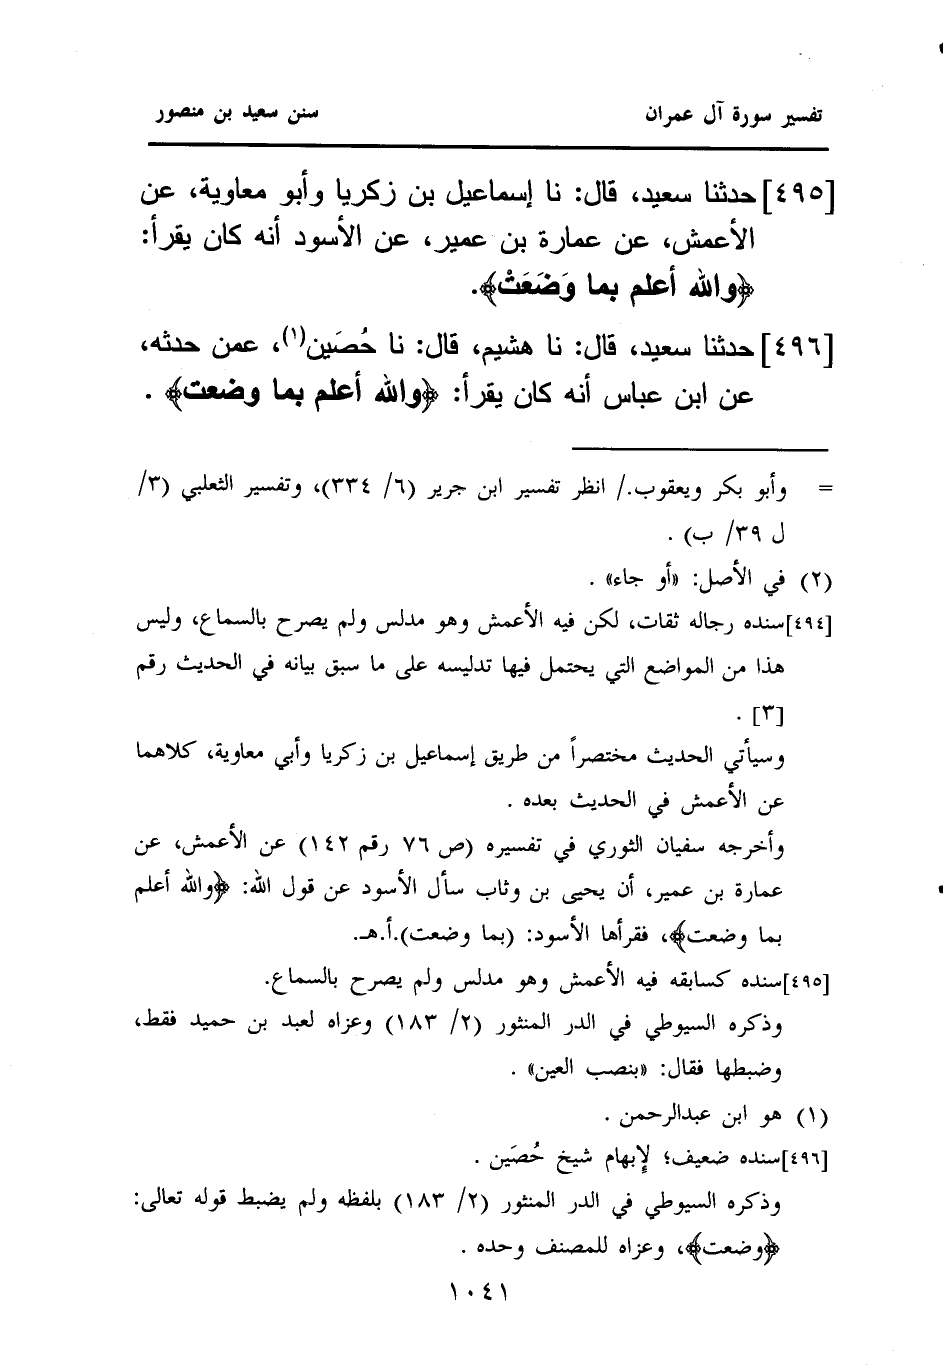 تفسير سورة آل عمران سنن سعيد بن منصور
[٤٩٥] حدثنا سعيد، قال: نا إسماعيل بن زكريا وأبو معاوية، عن
الأعمش، عن عمارة بن عمير، عن الأسود أنه كان يقرأ:
﴿والله أعلم بما وَضَعَتْ﴾.
[٤٩٦] حدثنا سعيد، قال: نا هشيم، قال: نا حُصَين(١)، عمن حدثه،
عن ابن عباس أنه كان يقرأ: ﴿والله أعلم بما وضعت﴾ .
= وأبو بكر ويعقوب./ انظر تفسير ابن جرير (٦/ ٣٣٤)، وتفسير الثعلبي (٣/
ل ٣٩/ ب) .
(٢) في الأصل: «أو جاء» .
[٤٩٤] سنده رجاله ثقات، لكن فيه الأعمش وهو مدلس ولم يصرح بالسماع، وليس
هذا من المواضع التي يحتمل فيها تدليسه على ما سبق بيانه في الحديث رقم
[٣] .
وسيأتي الحديث مختصراً من طريق إسماعيل بن زكريا وأبي معاوية، كلاهما
عن الأعمش في الحديث بعده .
وأخرجه سفيان الثوري في تفسيره (ص ٧٦ رقم ١٤٢) عن الأعمش، عن
عمارة بن عمير، أن يحيى بن وثاب سأل الأسود عن قول الله: ﴿والله أعلم
بما وضعت﴾، فقرأها الأسود: (بما وضعت).أ.هـ.
[٤٩٥] سنده كسابقه فيه الأعمش وهو مدلس ولم يصرح بالسماع.
وذكره السيوطي في الدر المنثور (٢/ ١٨٣) وعزاه لعبد بن حميد فقط،
وضبطها فقال: «بنصب العين» .
(١) هو ابن عبدالرحمن .
[٤٩٦] سنده ضعيف؛ لإبهام شيخ حُصَين .
وذكره السيوطي في الدر المنثور (٢/ ١٨٣) بلفظه ولم يضبط قوله تعالى:
﴿وضعت﴾، وعزاه للمصنف وحده .
١٠٤١